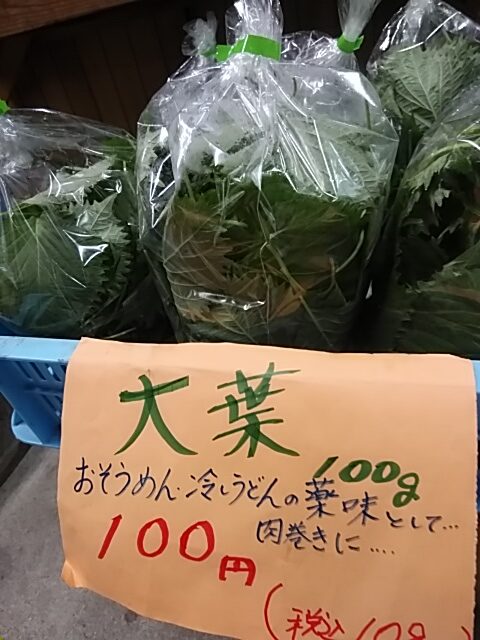 大葉
100g
おそうめん・冷しうどんの薬味として…
肉巻きに….
100円
(税込108